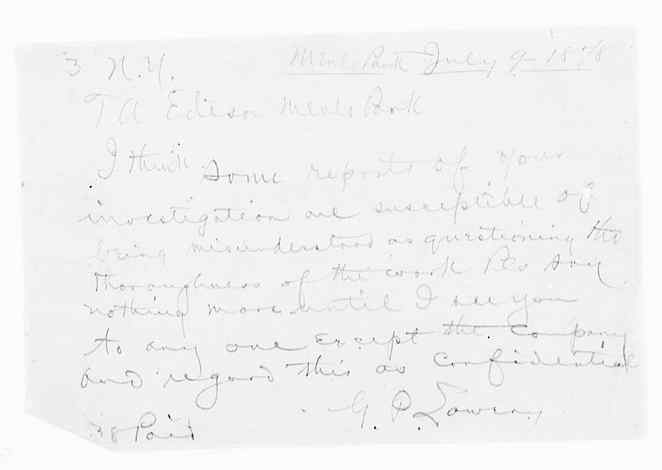 Menlo Park July 9 1878
3 N.Y.
T A Edison Menlo Park
I think some reports of your
investigation are susceptible of
being misunderstood as questioning the
thoroughness of the work Pls say
nothing more until I see you
to any one except the. Company
and regard this as confidential
G. P. Lowrey
38 Paid